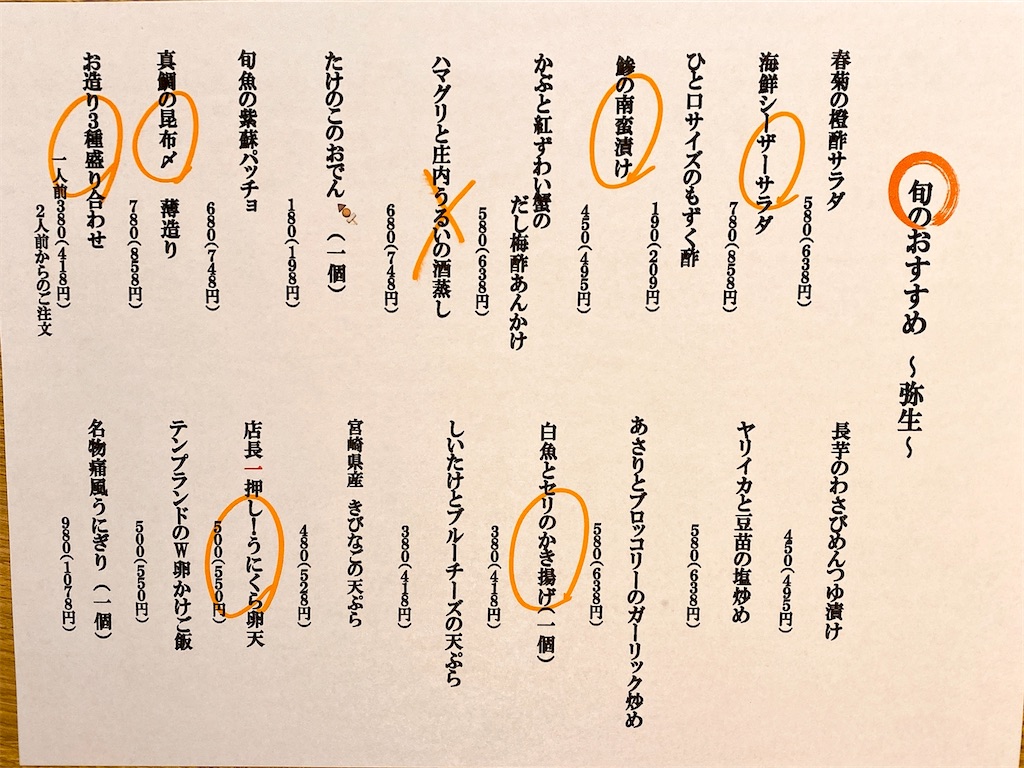 旬のおすすめ ～弥生～
春菊の橙酢サラダ
580(638円)
海鮮シーザーサラダ
780(858円)
ひと口サイズのもずく酢
190(209円)
鯵の南蛮漬け
450(495円)
かぶと紅ずわい蟹の
だし梅酢あんかけ
580(638円)
ハマグリと庄内うるいの酒蒸し
680(748円)
たけのこのおでん (一個)
180(198円)
旬魚の紫蘇パッチョ
680(748円)
真鯛の昆布〆 薄造り
780(858円)
お造り3種盛り合わせ
一人前380(418円)
2人前からのご注文
長芋のわさびめんつゆ漬け
450(495円)
ヤリイカと豆苗の塩炒め
580(638円)
あさりとブロッコリーのガーリック炒め
580(638円)
白魚とセリのかき揚げ(一個)
380(418円)
しいたけとブルーチーズの天ぷら
380(418円)
宮崎県産 きびなごの天ぷら
480(528円)
店長一押し!うにくら卵天
500(550円)
テンプランドのW卵かけご飯
500(550円)
名物痛風うにぎり (一個)
980(1078円)